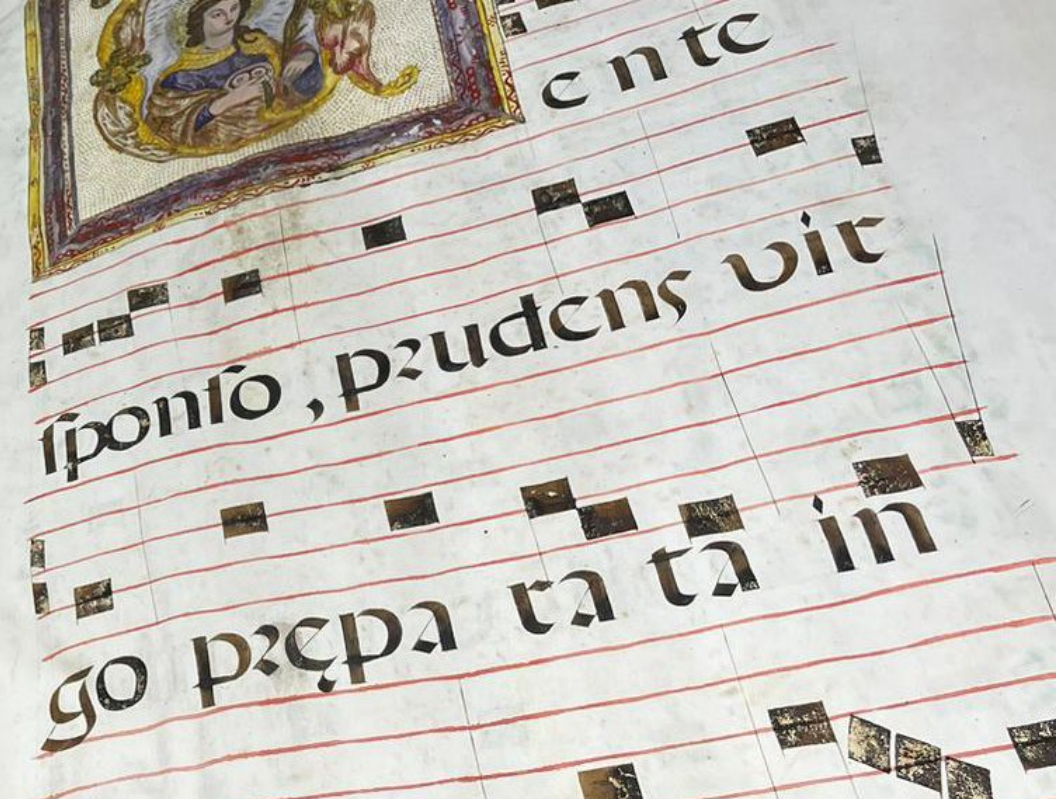 ente
ſponſo, prudens vir
go prępa ra ta in